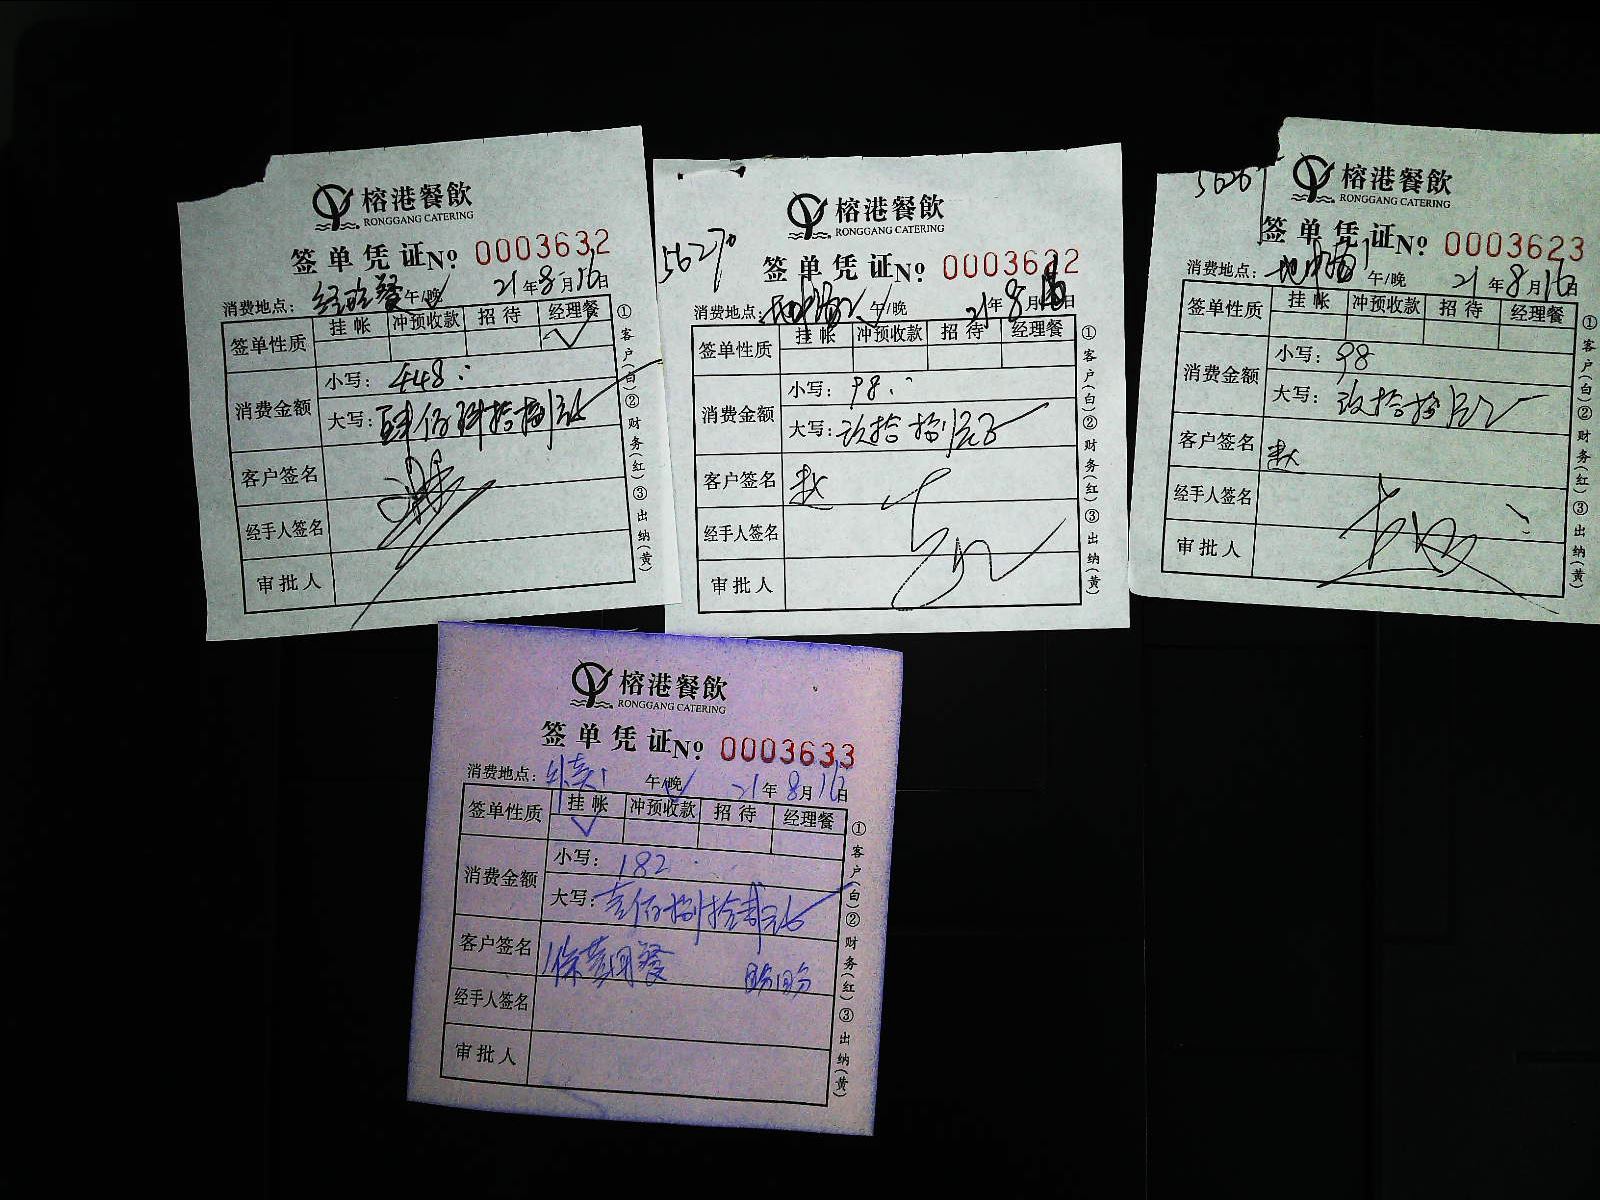 榕港餐飲
RONGGANG CATERING
签单凭证No 0003632
消费地点：经理餐 午/晚 21年8月16日
签单性质 挂帐 冲预收款 招待 经理餐
消费金额 小写：448
大写：肆佰肆拾捌元
客户签名
经手人签名
审批人
①客户(白)②财务(红)③出纳(黄)
榕港餐飲
RONGGANG CATERING
5627
签单凭证No 0003622
消费地点： 午/晚 21年8月16日
签单性质 挂帐 冲预收款 招待 经理餐
消费金额 小写：98
大写：玖拾捌元
客户签名 赵
经手人签名
审批人
①客户(白)②财务(红)③出纳(黄)
5626
榕港餐飲
RONGGANG CATERING
签单凭证No 0003623
消费地点： 午/晚 21年8月16日
签单性质 挂帐 冲预收款 招待 经理餐
消费金额 小写：98
大写：玖拾捌元
客户签名 赵
经手人签名
审批人
①客户(白)②财务(红)③出纳(黄)
榕港餐飲
RONGGANG CATERING
签单凭证No 0003633
消费地点：外卖 午/晚 21年8月16日
签单性质 挂帐 冲预收款 招待 经理餐
消费金额 小写：182
大写：壹佰捌拾贰元
客户签名
经手人签名
审批人
①客户(白)②财务(红)③出纳(黄)